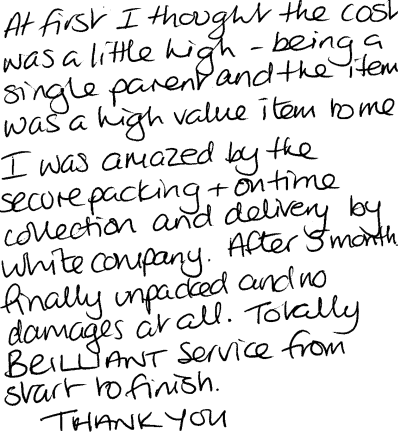 At first I thought the cost
was a little high - being a
single parent and the item
was a high value item to me
I was amazed by the
secure packing + on time
collection and delivery by
white company. After 5 month
finally unpacked and no
damages at all. Totally
BRILLIANT service from
start to finish.
THANK YOU